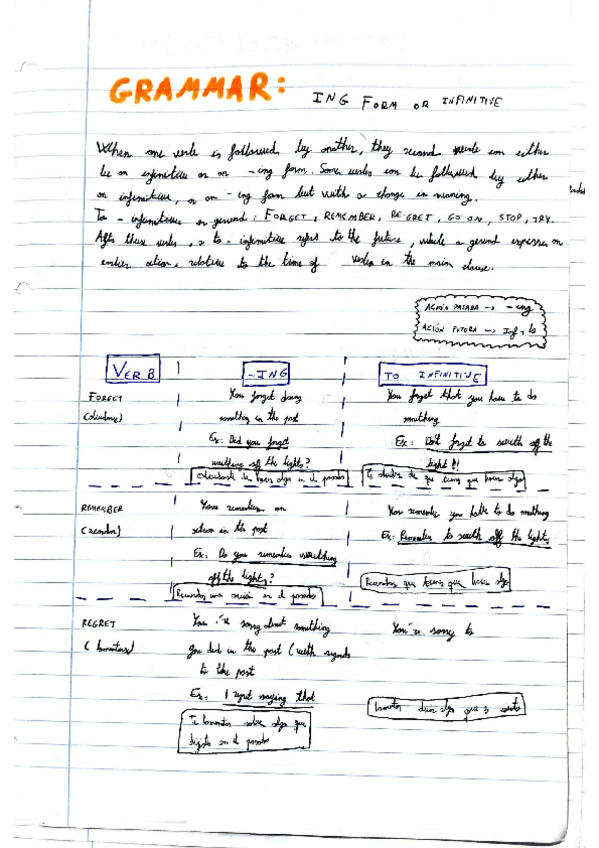 GRAMMAR: ING FORM OR INFINITIVE
When one verb is followed by another, they second verb can either
be an infinitive or an -ing form. Some verbs can be followed by either
an infinitive, or an -ing form but with a change in meaning.
To - infinitive or gerund: FORGET, REMEMBER, RE-GRET, GO ON, STOP, TRY.
After these verbs, a to-infinitive refers to the future, while a gerund expresses an
earlier action, relative to the time of verbs in the main clause.
ACIÓN PASADA -> -ing
ACIÓN FUTURA -> Inf + to
VERB
-ING
TO INFINITIVE
FORGET
(olvidarse)
You forget doing
something in the past
Ex: Did you forget
switching off the lights?
You forget that you have to do
something
Ex: Don't forget to switch off the
light
REMEMBER
(recordar)
You remember an
action in the past
Ex: Do you remember switching
off the lights?
Recuerdas una acción en el pasado
You remember you have to do something
Ex: Remember to switch off the lights
Recuerdas que tienes que hacer algo
REGRET
(lamentarse)
You're sorry about something
you did in the past (with regards
to the past
Ex: I regret saying that
Te lamentas sobre algo que
dijiste en el pasado
You're sorry to